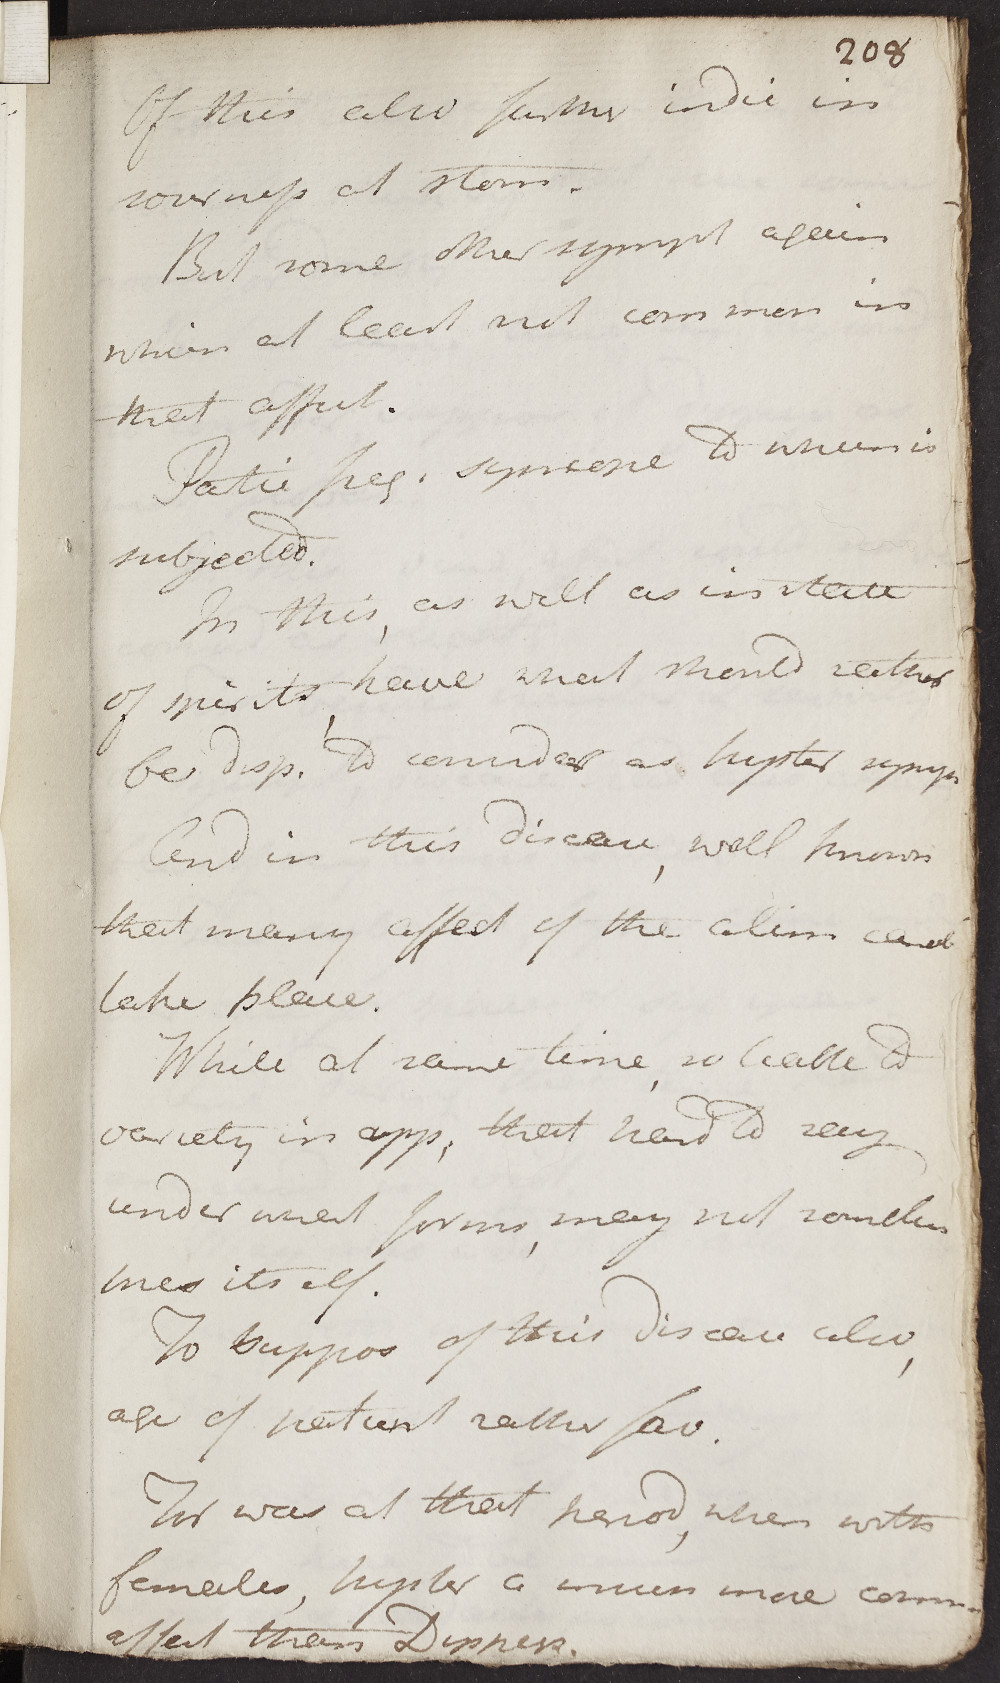 208
Of this also further indic in
sourness at stom.
But some other sympt again
which at least not common in
that affect.
Patic freq. syncope to which is
subjected.
In this, as well as in state
of spirits, have what should rather
be disp. to consider as hyster symp
And in this disease, well known
that many affect of the alim canal
take place.
While at same time, so liable to
variety in app, that hard to say
under what forms, may not sometim
shew itself.
To suppos of this disease also,
age of patient rather fav.
For was at that period, when with
females, hyster a much more comm
affect than Dyspeps.